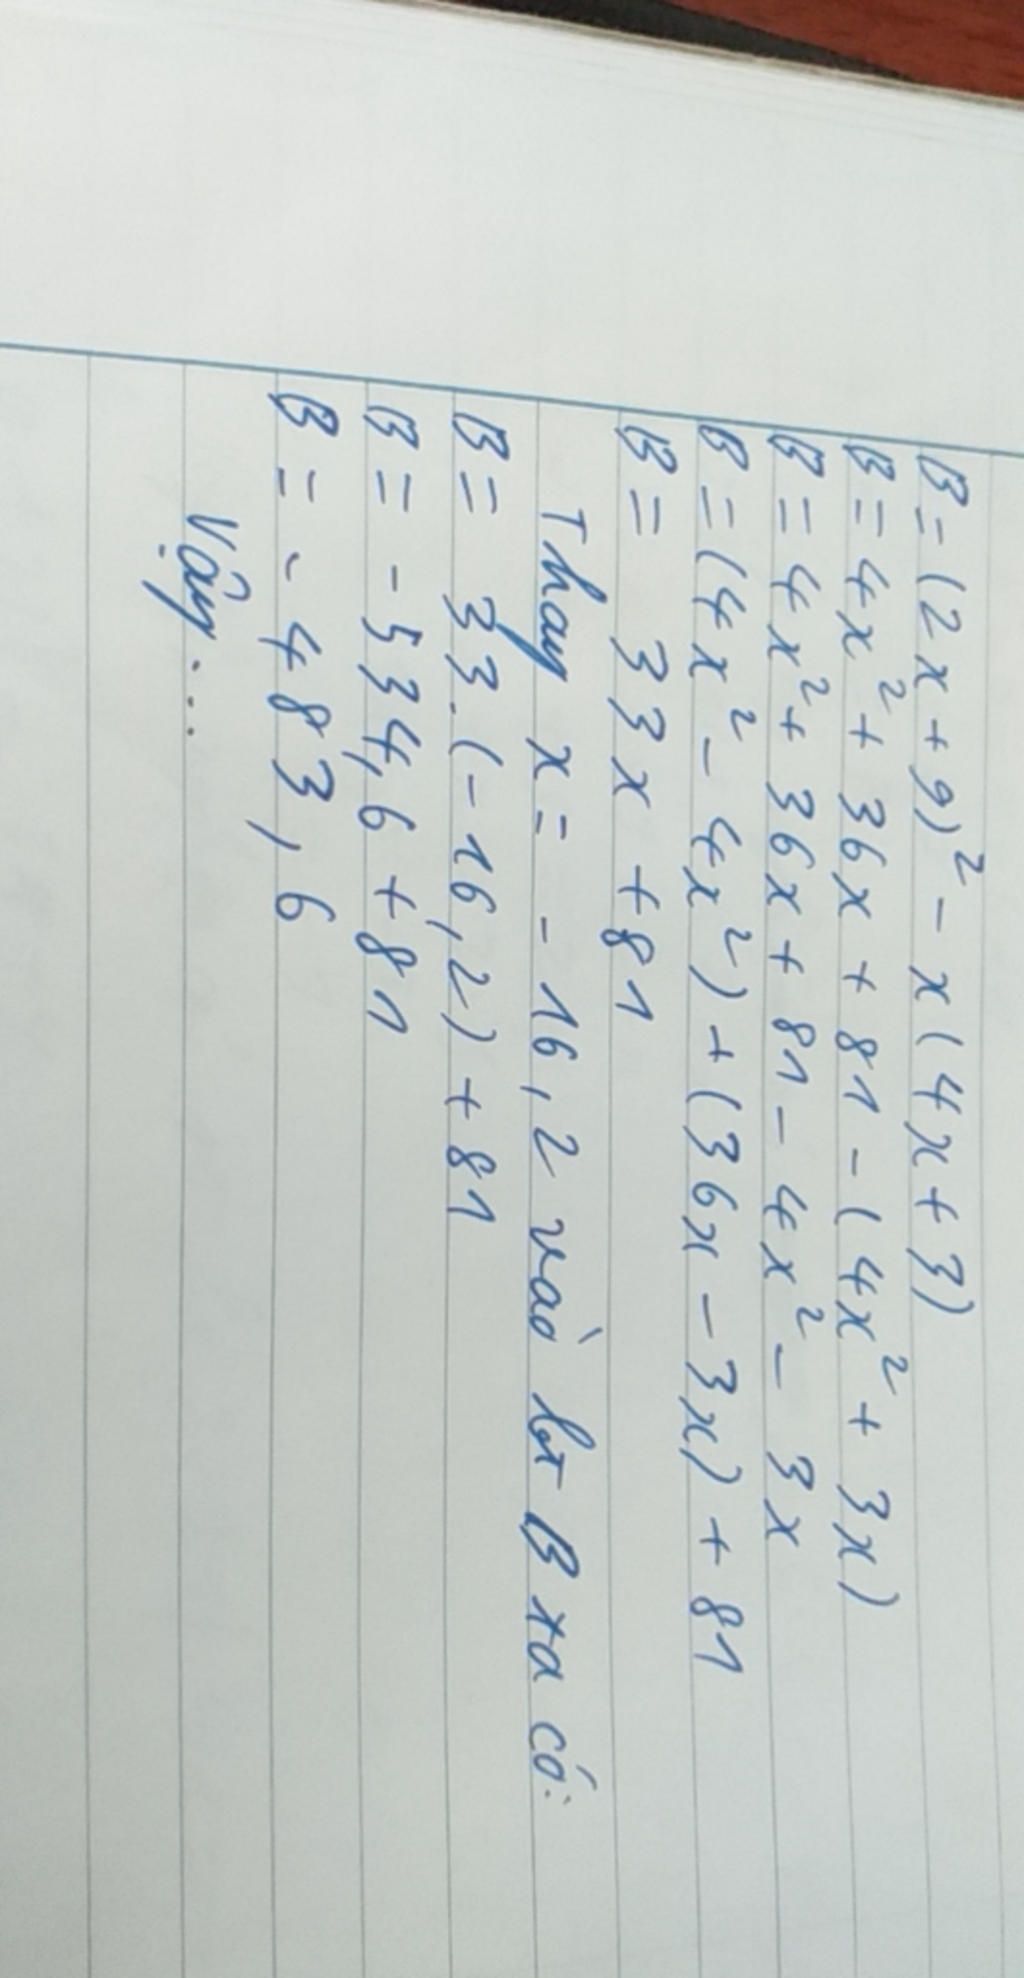 B = (2x + 9)² - x(4x + 3)
B = 4x² + 36x + 81 - (4x² + 3x)
B = 4x² + 36x + 81 - 4x² - 3x
B = (4x² - 4x²) + (36x - 3x) + 81
B = 33x + 81
Thay x = -16,2 vào bt B ta có:
B = 33.(-16,2) + 81
B = -534,6 + 81
B = -483,6
Vậy...